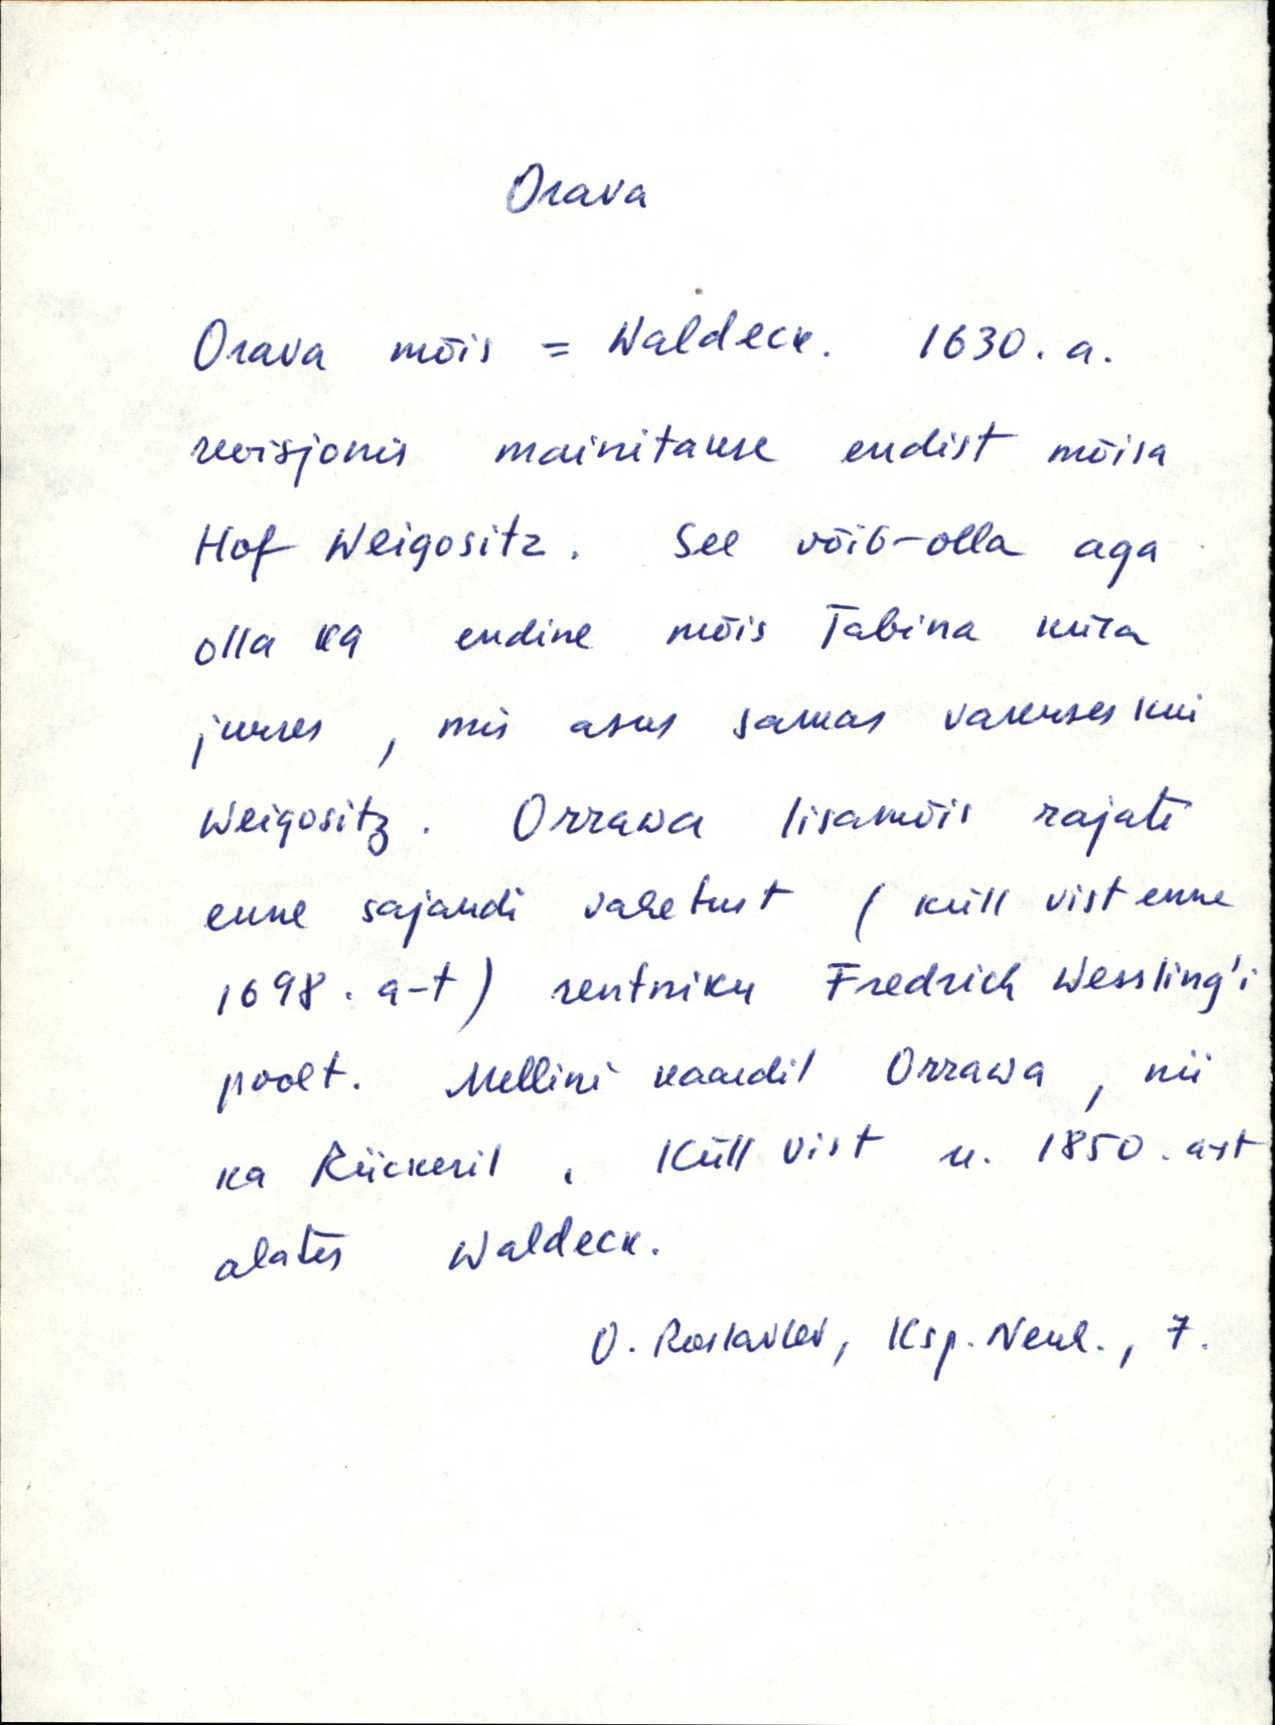 Orava
Orava mõis = Waldeck. 1630. a.
revisjonis mainitakse endist mõisa
Hof Weigositz. See võib-olla aga
olla ka endine mõis Tabina küla
juures, mis asus samas vakuses kui
Weigositz. Orrawa lisamõis rajati
enne sajandi vahetust (küll vist enne
1698. a-t) rentniku Fredrich Wessling'i
poolt. Mellini kaardil Orrawa, nii
ka Rückeril. Küll vist u. 1850. a-st
alates Waldeck.
O. Roslavlev, Ksp. Neuh., 7.